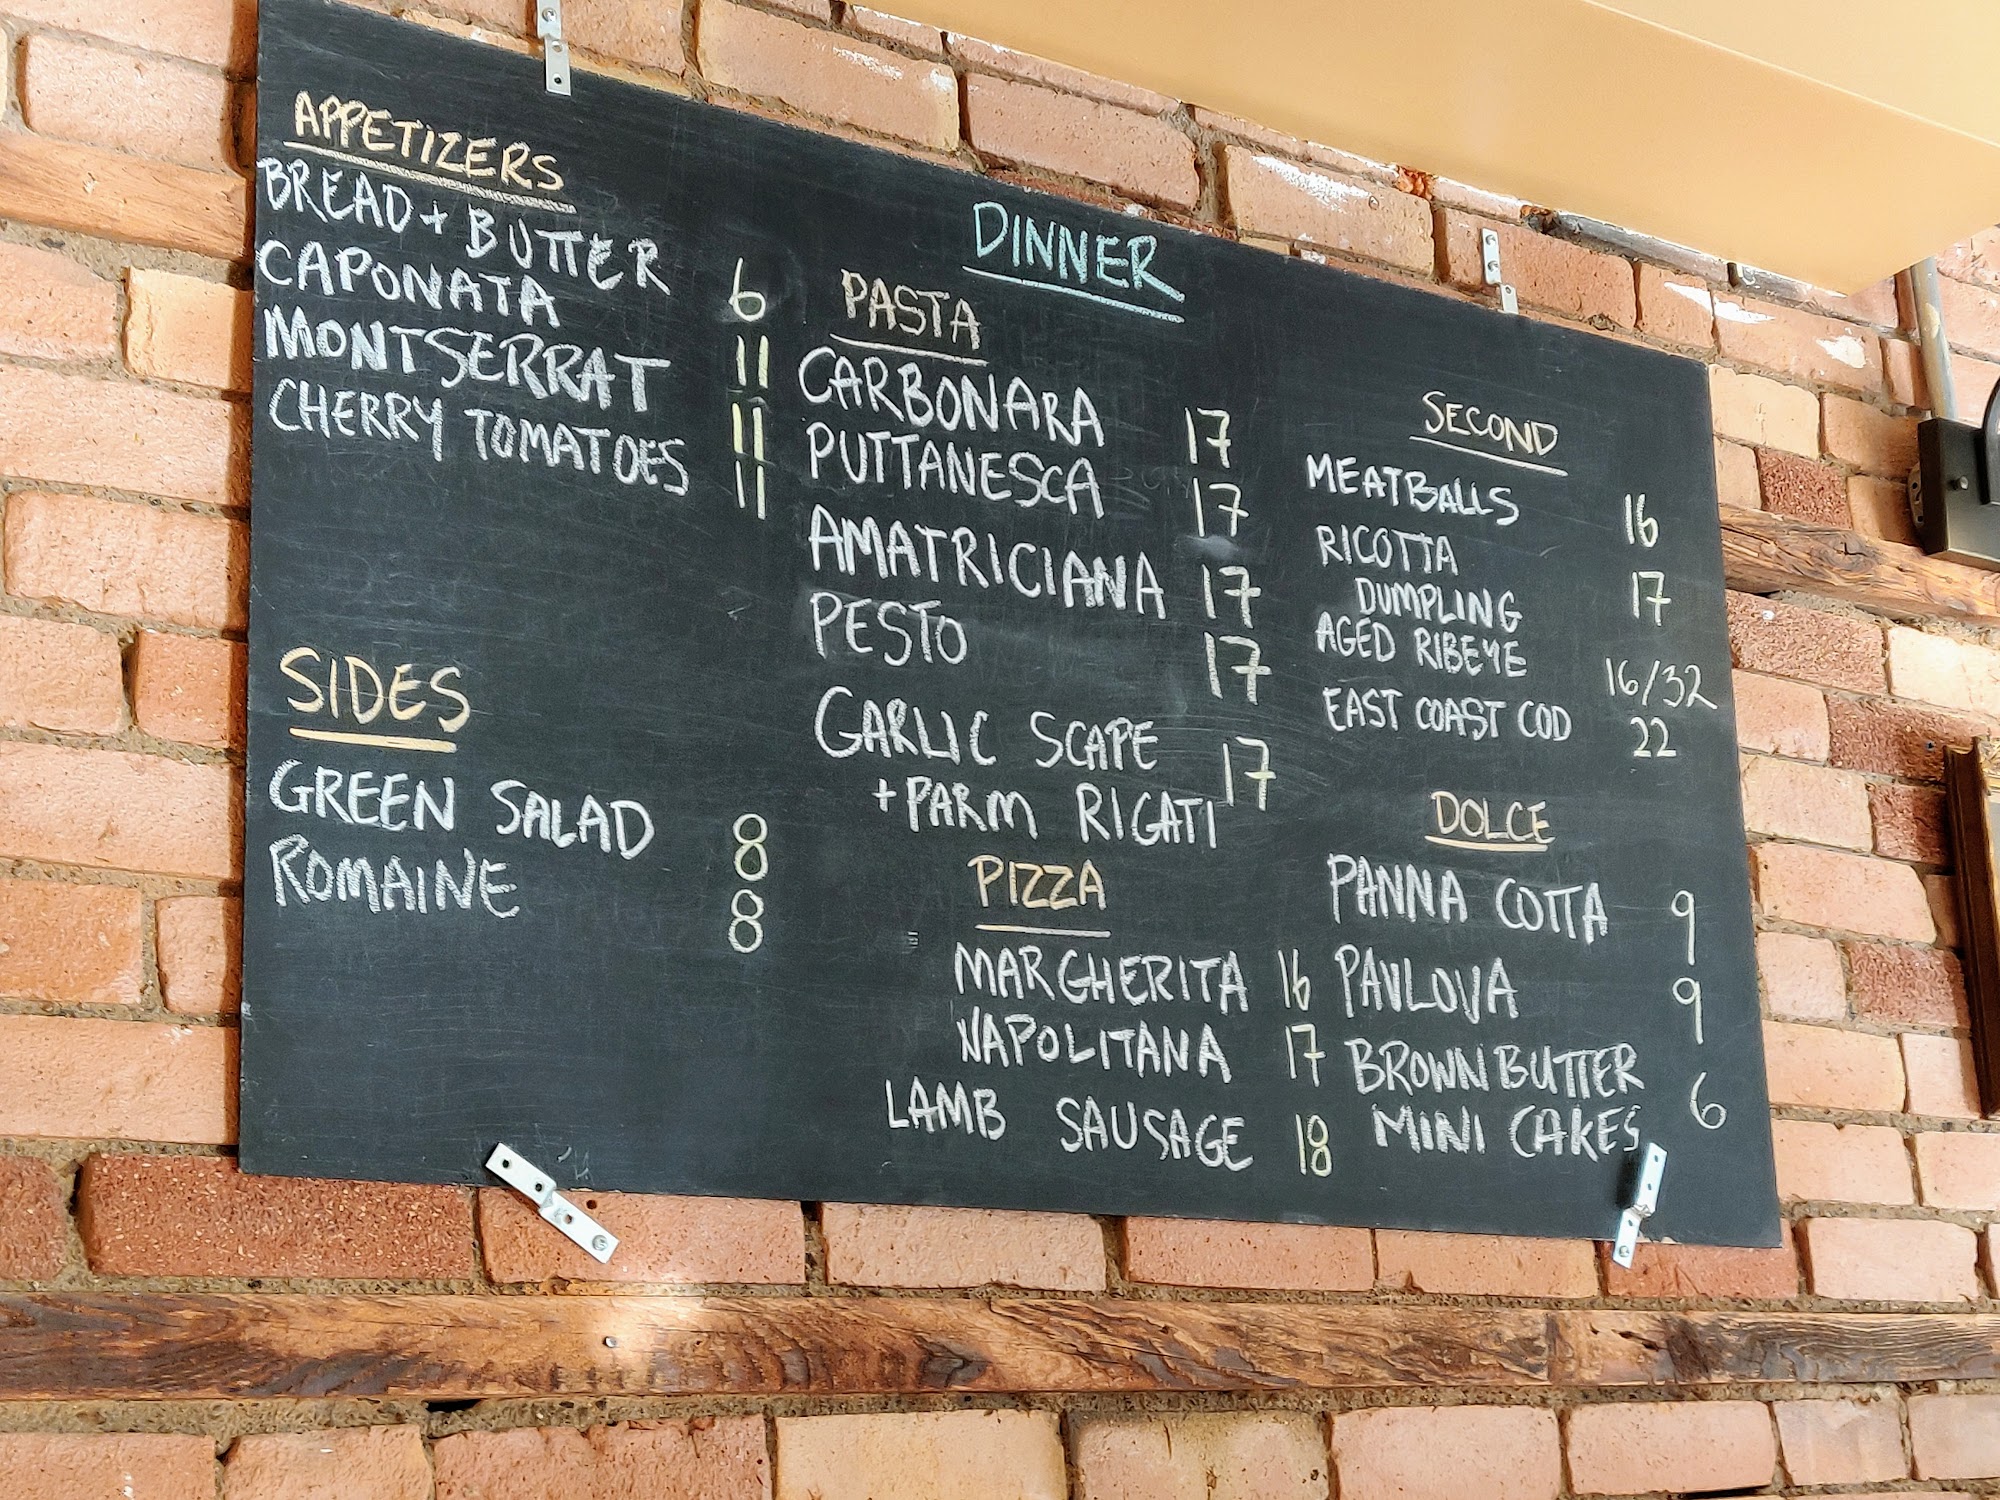 DINNER
APPETIZERS
BREAD + BUTTER 6
CAPONATA 11
MONTSERRAT 11
CHERRY TOMATOES 11
SIDES
GREEN SALAD 8
ROMAINE 8
PASTA
CARBONARA 17
PUTTANESCA 17
AMATRICIANA 17
PESTO 17
GARLIC SCAPE 17
+ PARM RIGATI
PIZZA
MARGHERITA 16
NAPOLITANA 17
LAMB SAUSAGE 18
SECOND
MEATBALLS 16
RICOTTA
DUMPLING 17
AGED RIBEYE 16/32
EAST COAST COD 22
DOLCE
PANNA COTTA 9
PAVLOVA 9
BROWN BUTTER
MINI CAKES 6